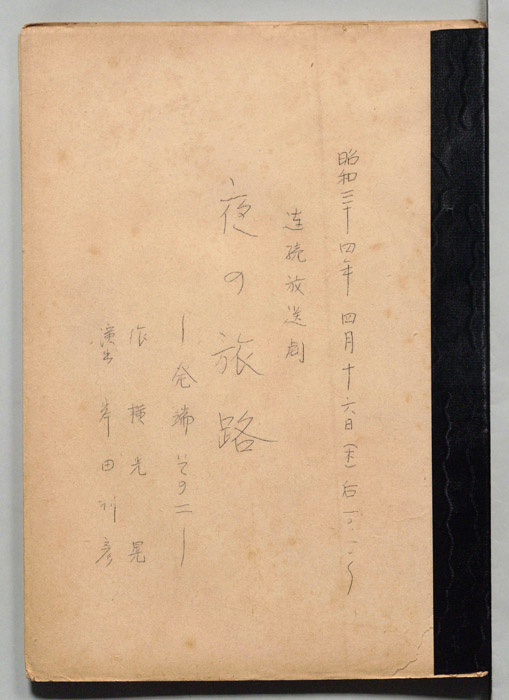 昭和三十四年 四月十六日(木)后一〇・一〇〜
連続放送劇
夜の旅路
―発端 その二―
作 横光晃
演出 岸田利彦